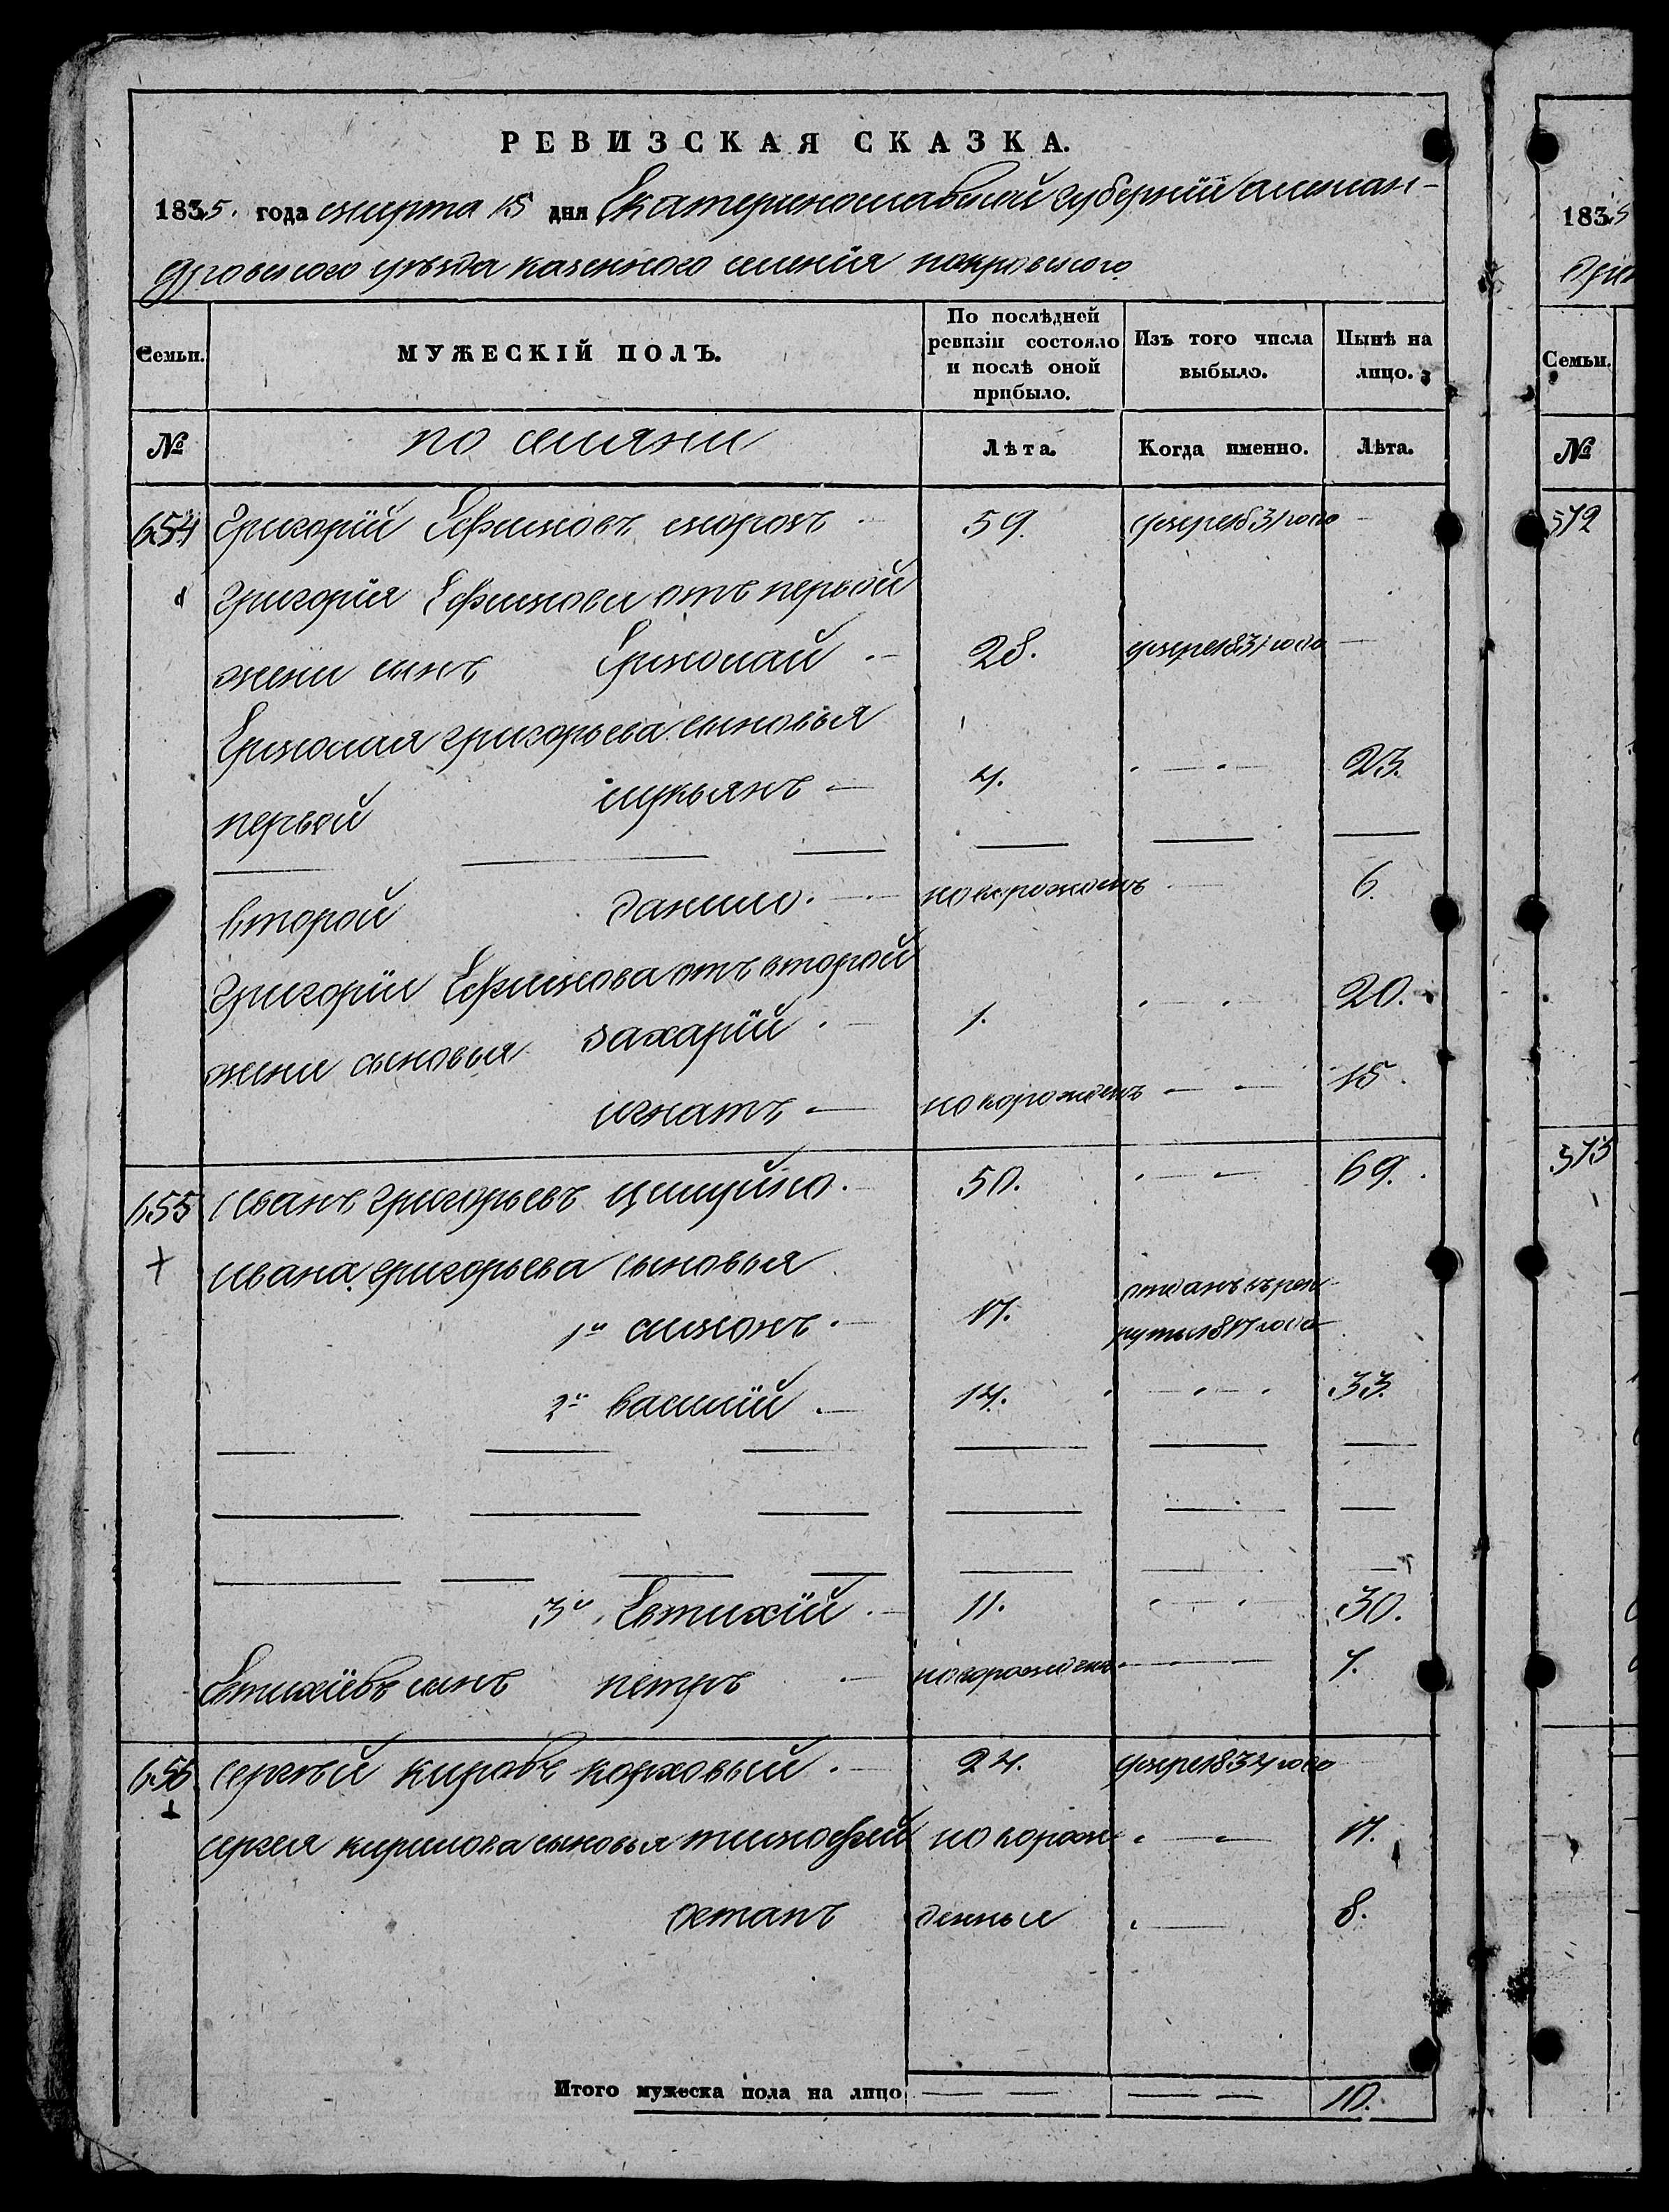 РЕВИЗСКАЯ СКАЗКА.
1835. года марта 15 дня Екатеринославской губернии александ-
дровского уѣзда казенного селенія покровского
Семьи. МУЖЕСКІЙ ПОЛЪ. По послѣдней ревизіи состояло и послѣ оной прибыло. Изъ того числа выбыло. Нынѣ на лицо.
№ Лѣта. Когда именно. Лѣта.
654 Григорій Ефимовъ мороз 59. умере 1831 года
Григорія Ефимова отъ первой
жени синъ Ермолай 28. умере 1831 года
Ермолая григорьева сыновья
первой лукьянъ 4. 23.
второй данило новорожденъ 6.
Григорія Ефимова отъ второй
жени сыновья захарій 1. 20.
игнатъ новорожденъ 15.
655 Иванъ григорьевъ 50. 69.
ивана григорьева сыновья
1й симонъ 17. отданъ въ рек
руты 1817 года
2й василій 14. 33.
3й Евтихій 11. 30.
Евтихіевъ синъ петръ новорожденъ 4.
656 сергѣй кировъ корховый 24. умере 1834 года
сергея кирилова сыновья тимофей новорож 17.
остапъ денные 8.
Итого мужеска пола на лицо 10.
1835
Семьи.
№
572
573